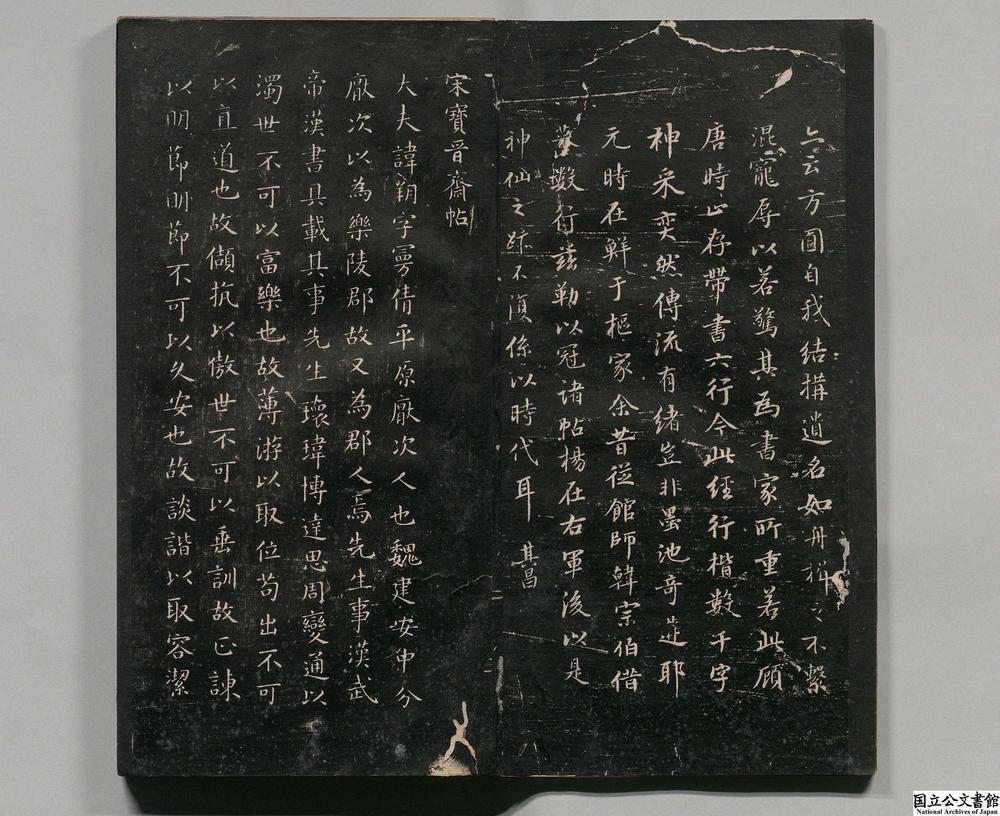 亦云方圓自我結搆遺名如舟楫之不繫
混寵辱以若驚其為書家所重若此顧
唐時止存帶書六行今此經行楷數千字
神采奕然傳流有緒豈非墨池奇遘耶
元時在鮮于樞家余昔從館師韓宗伯借
摹數行茲勒以冠諸帖楊在右軍後以是
神仙之跡不復係以時代耳　其昌
宋寶晉齋帖
大夫諱朔字曼倩平原厭次人也魏建安中分
厭次以為樂陵郡故又為郡人焉先生事漢武
帝漢書具載其事先生瓌瑋博達思周變通以
濁世不可以富樂也故薄游以取位苟出不可
以直道也故頡抗以傲世傲世不可以垂訓故正諫
以明節明節不可以久安也故談諧以取容潔
国立公文書館
National Archives of Japan